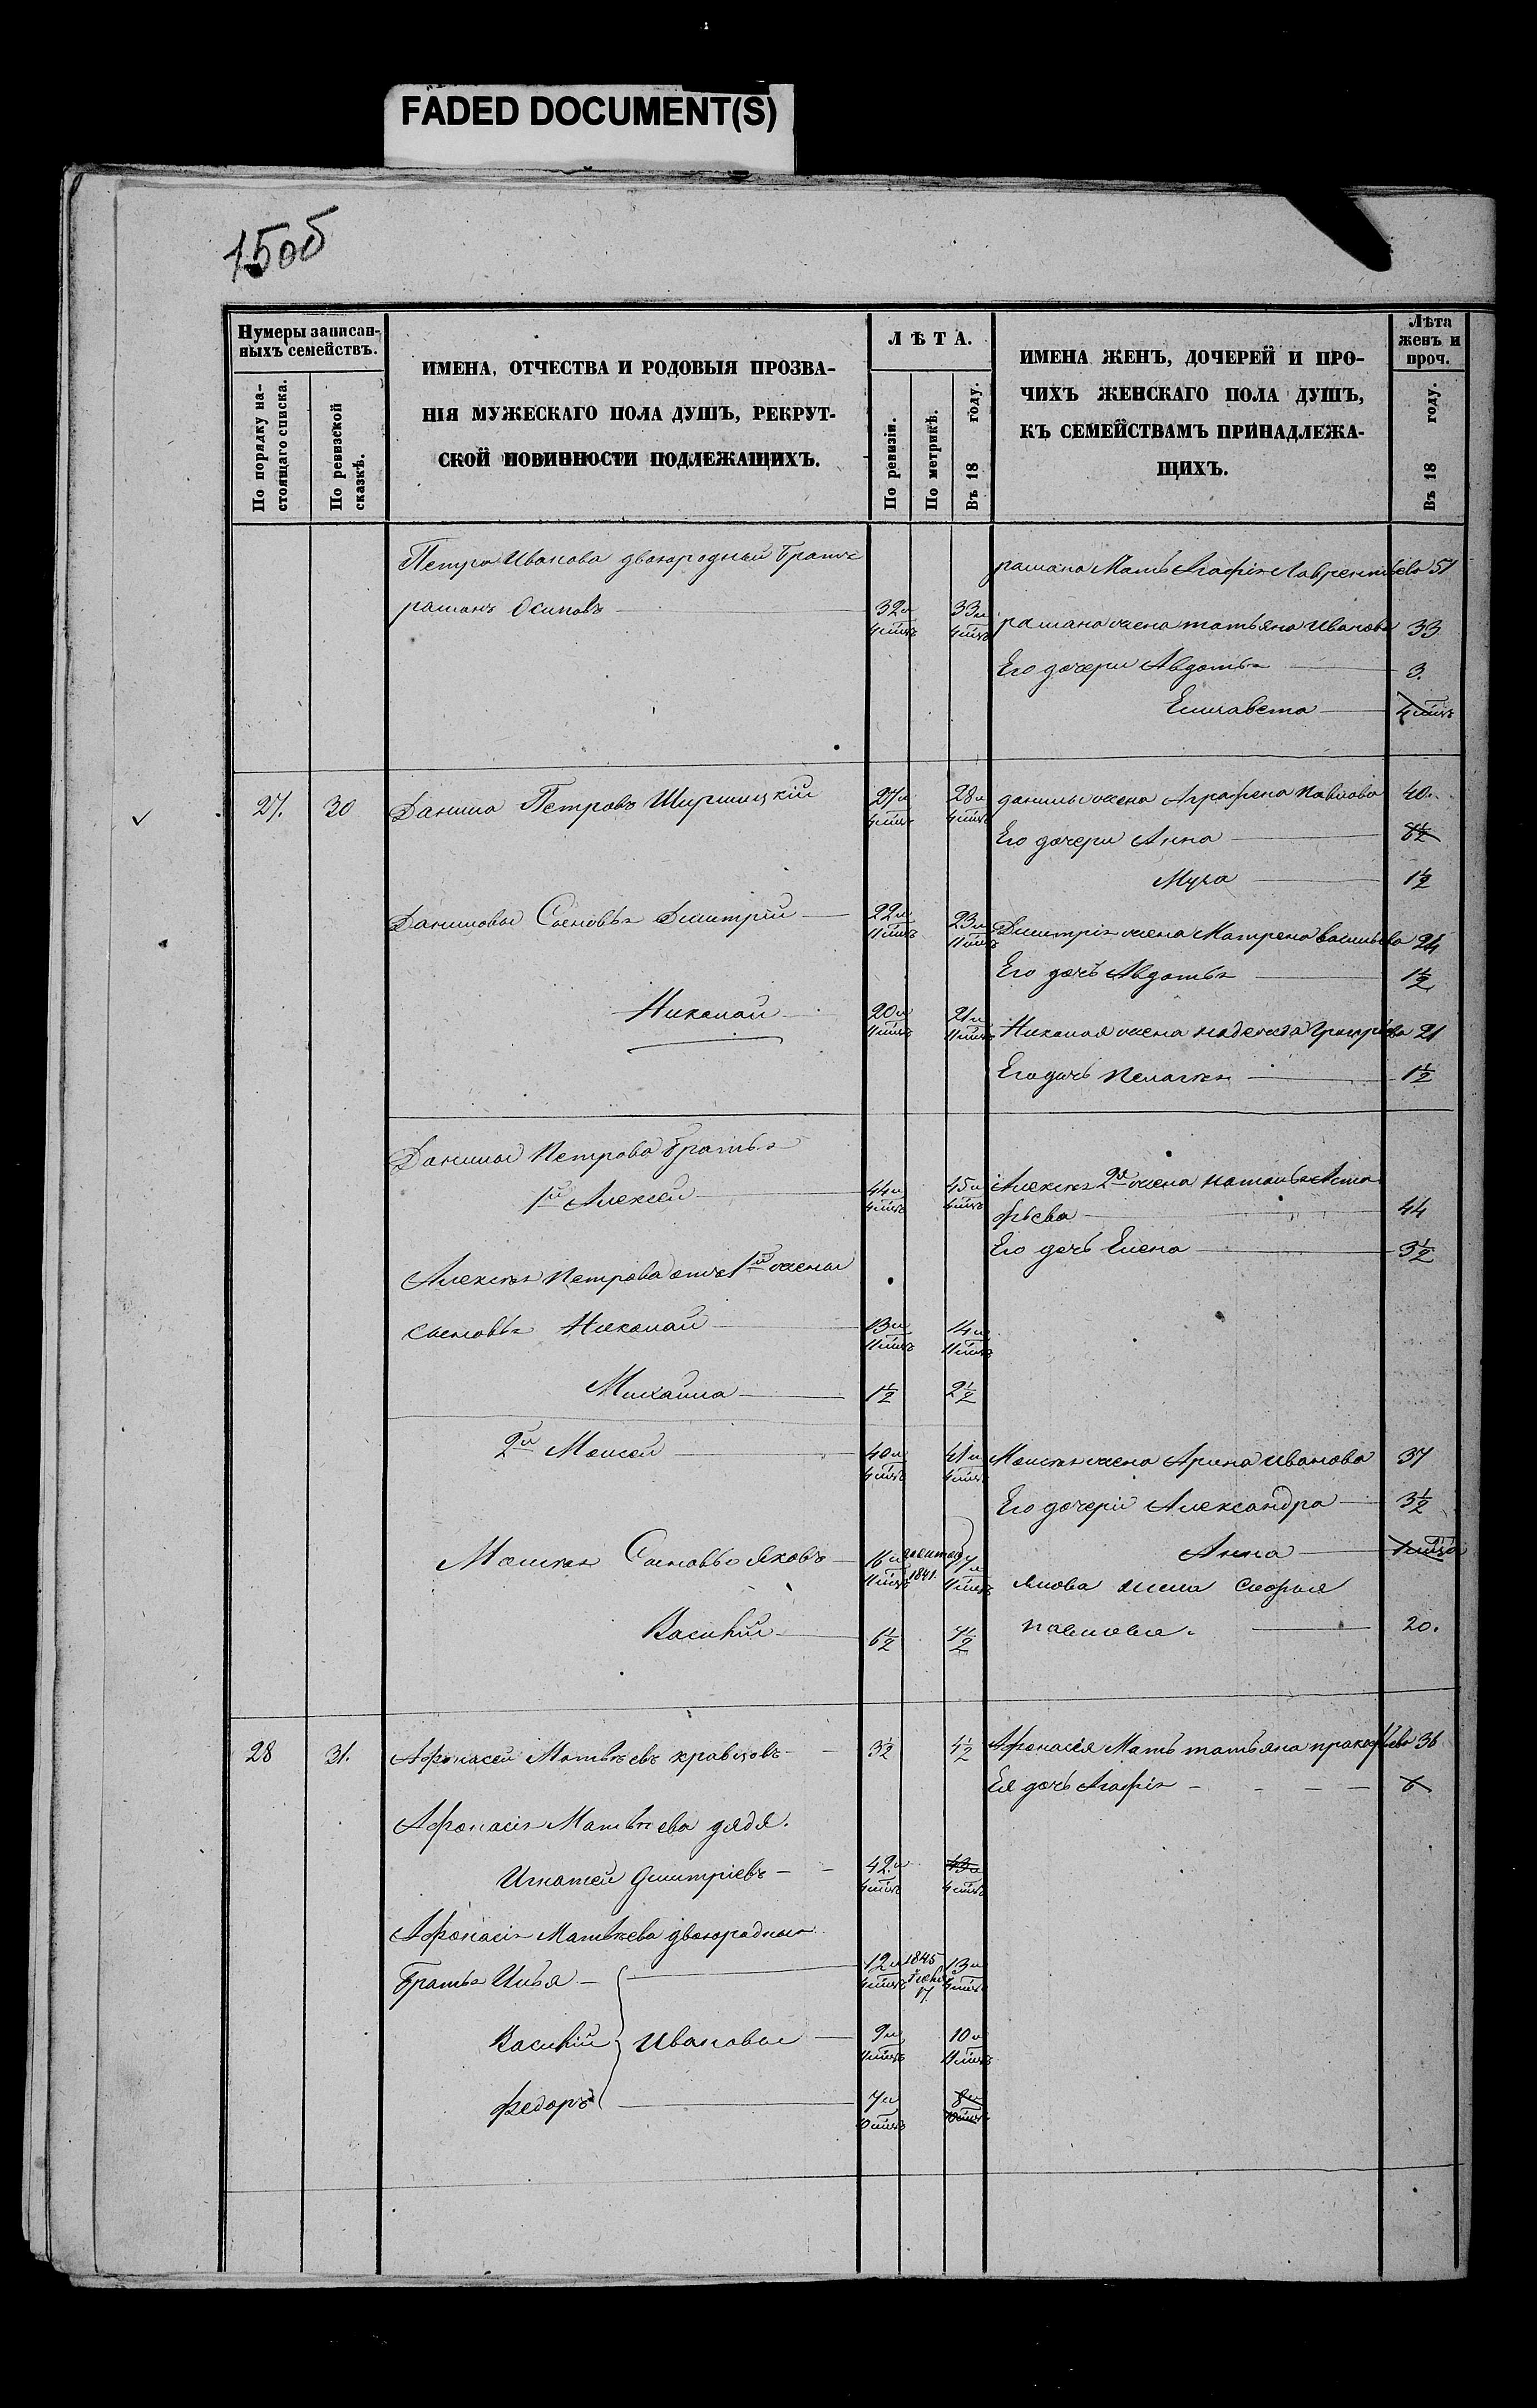 FADED DOCUMENT(S)
15об
Нумеры записан-
ныхъ семействъ.
По порядку на-
стоящаго списка.
По ревизской
сказкѣ.
ИМЕНА, ОТЧЕСТВА И РОДОВЫЯ ПРОЗВА-
НІЯ МУЖЕСКАГО ПОЛА ДУШЪ, РЕКРУТ-
СКОЙ ПОВИННОСТИ ПОДЛЕЖАЩИХЪ.
ЛѢТА.
По ревизіи.
По метрикѣ.
Въ 18 году.
ИМЕНА ЖЕНЪ, ДОЧЕРЕЙ И ПРО-
ЧИХЪ ЖЕНСКАГО ПОЛА ДУШЪ,
КЪ СЕМЕЙСТВАМЪ ПРИНАДЛЕЖА-
ЩИХЪ.
Лѣта
женъ и
проч.
Въ 18 году.
Петра Иванова двоюродный братъ
рамана Мать Агафія Лаврентьева 57
раманъ Осиповъ 32и 33и
рамана жена татьяна Иванова 33
Его дочери Авдотья 3.
Елизавета 4
27. 30 Данила Петровъ 27и 28и данилы жена Аграфена Павлова 40.
Его дочери Анна 6½
1½
Даниловы Сыновья Дмитрій 22и 23и Дмитрія жена Матрена васильева 24
Его дочь Авдотья 1½
Николай 20и 21и Николая жена надежда 21
Его дочь Пелагея 1½
Данилы Петрова братья
1й Алексей 44и 45и Алексея 2я жена наталья Аста
фьева 44
Его дочь Елена 3½
Алексея Петрова отъ 1й жены
сыновья Николай 13и 14и
Михайла 1½ 2½
2й Моисей 40и 41и Моисея жена Арина Иванова 37
Его дочери Александра 3½
Анна
Моисея Сыновья Яковъ 16и 1841. 17и Якова жена Софья
Василій 6½ 7½ павлова. 20.
28 31. Афонасей Матвеевъ кравцовъ 3½ 4½ Афонасія Мать татьяна пракофьева 36
Ея дочь Агафія 6
Афонасія Матвеева дядя.
Игнатей Дмитріевъ 42.и 43и
Афонасія Матвеева двоюродныя
братья Илья 12и 1845 17 13и
Василій Ивановы 9и 10и
федоръ 7и 8и